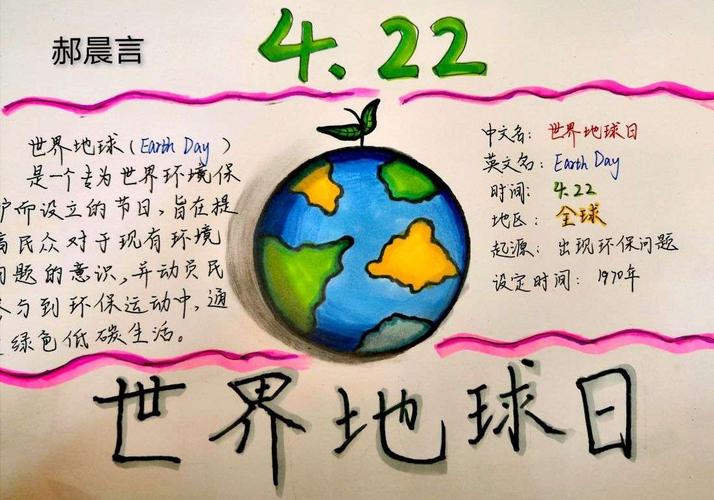 郝晨言
4.22
世界地球(Earth Day)
是一个专为世界环境保
护而设立的节日,旨在提
高民众对于现有环境
问题的意识,并动员民
参与到环保运动中,通
过绿色低碳生活。
中文名: 世界地球日
英文名: Earth Day
时间: 4.22
地区: 全球
起源: 出现环保问题
设定时间: 1970年
世界地球日